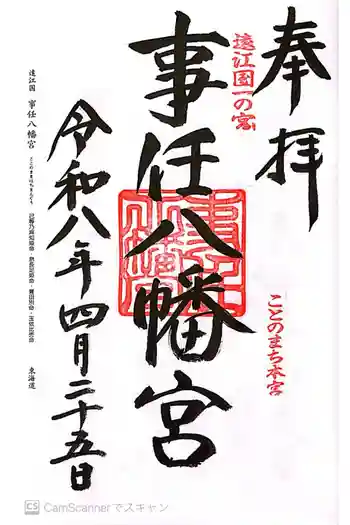 奉拝
遠江国一の宮
ことのまち本宮
事任八幡宮
令和八年四月二十五日
遠江国 事任八幡宮
東海道
CamScannerでスキャン